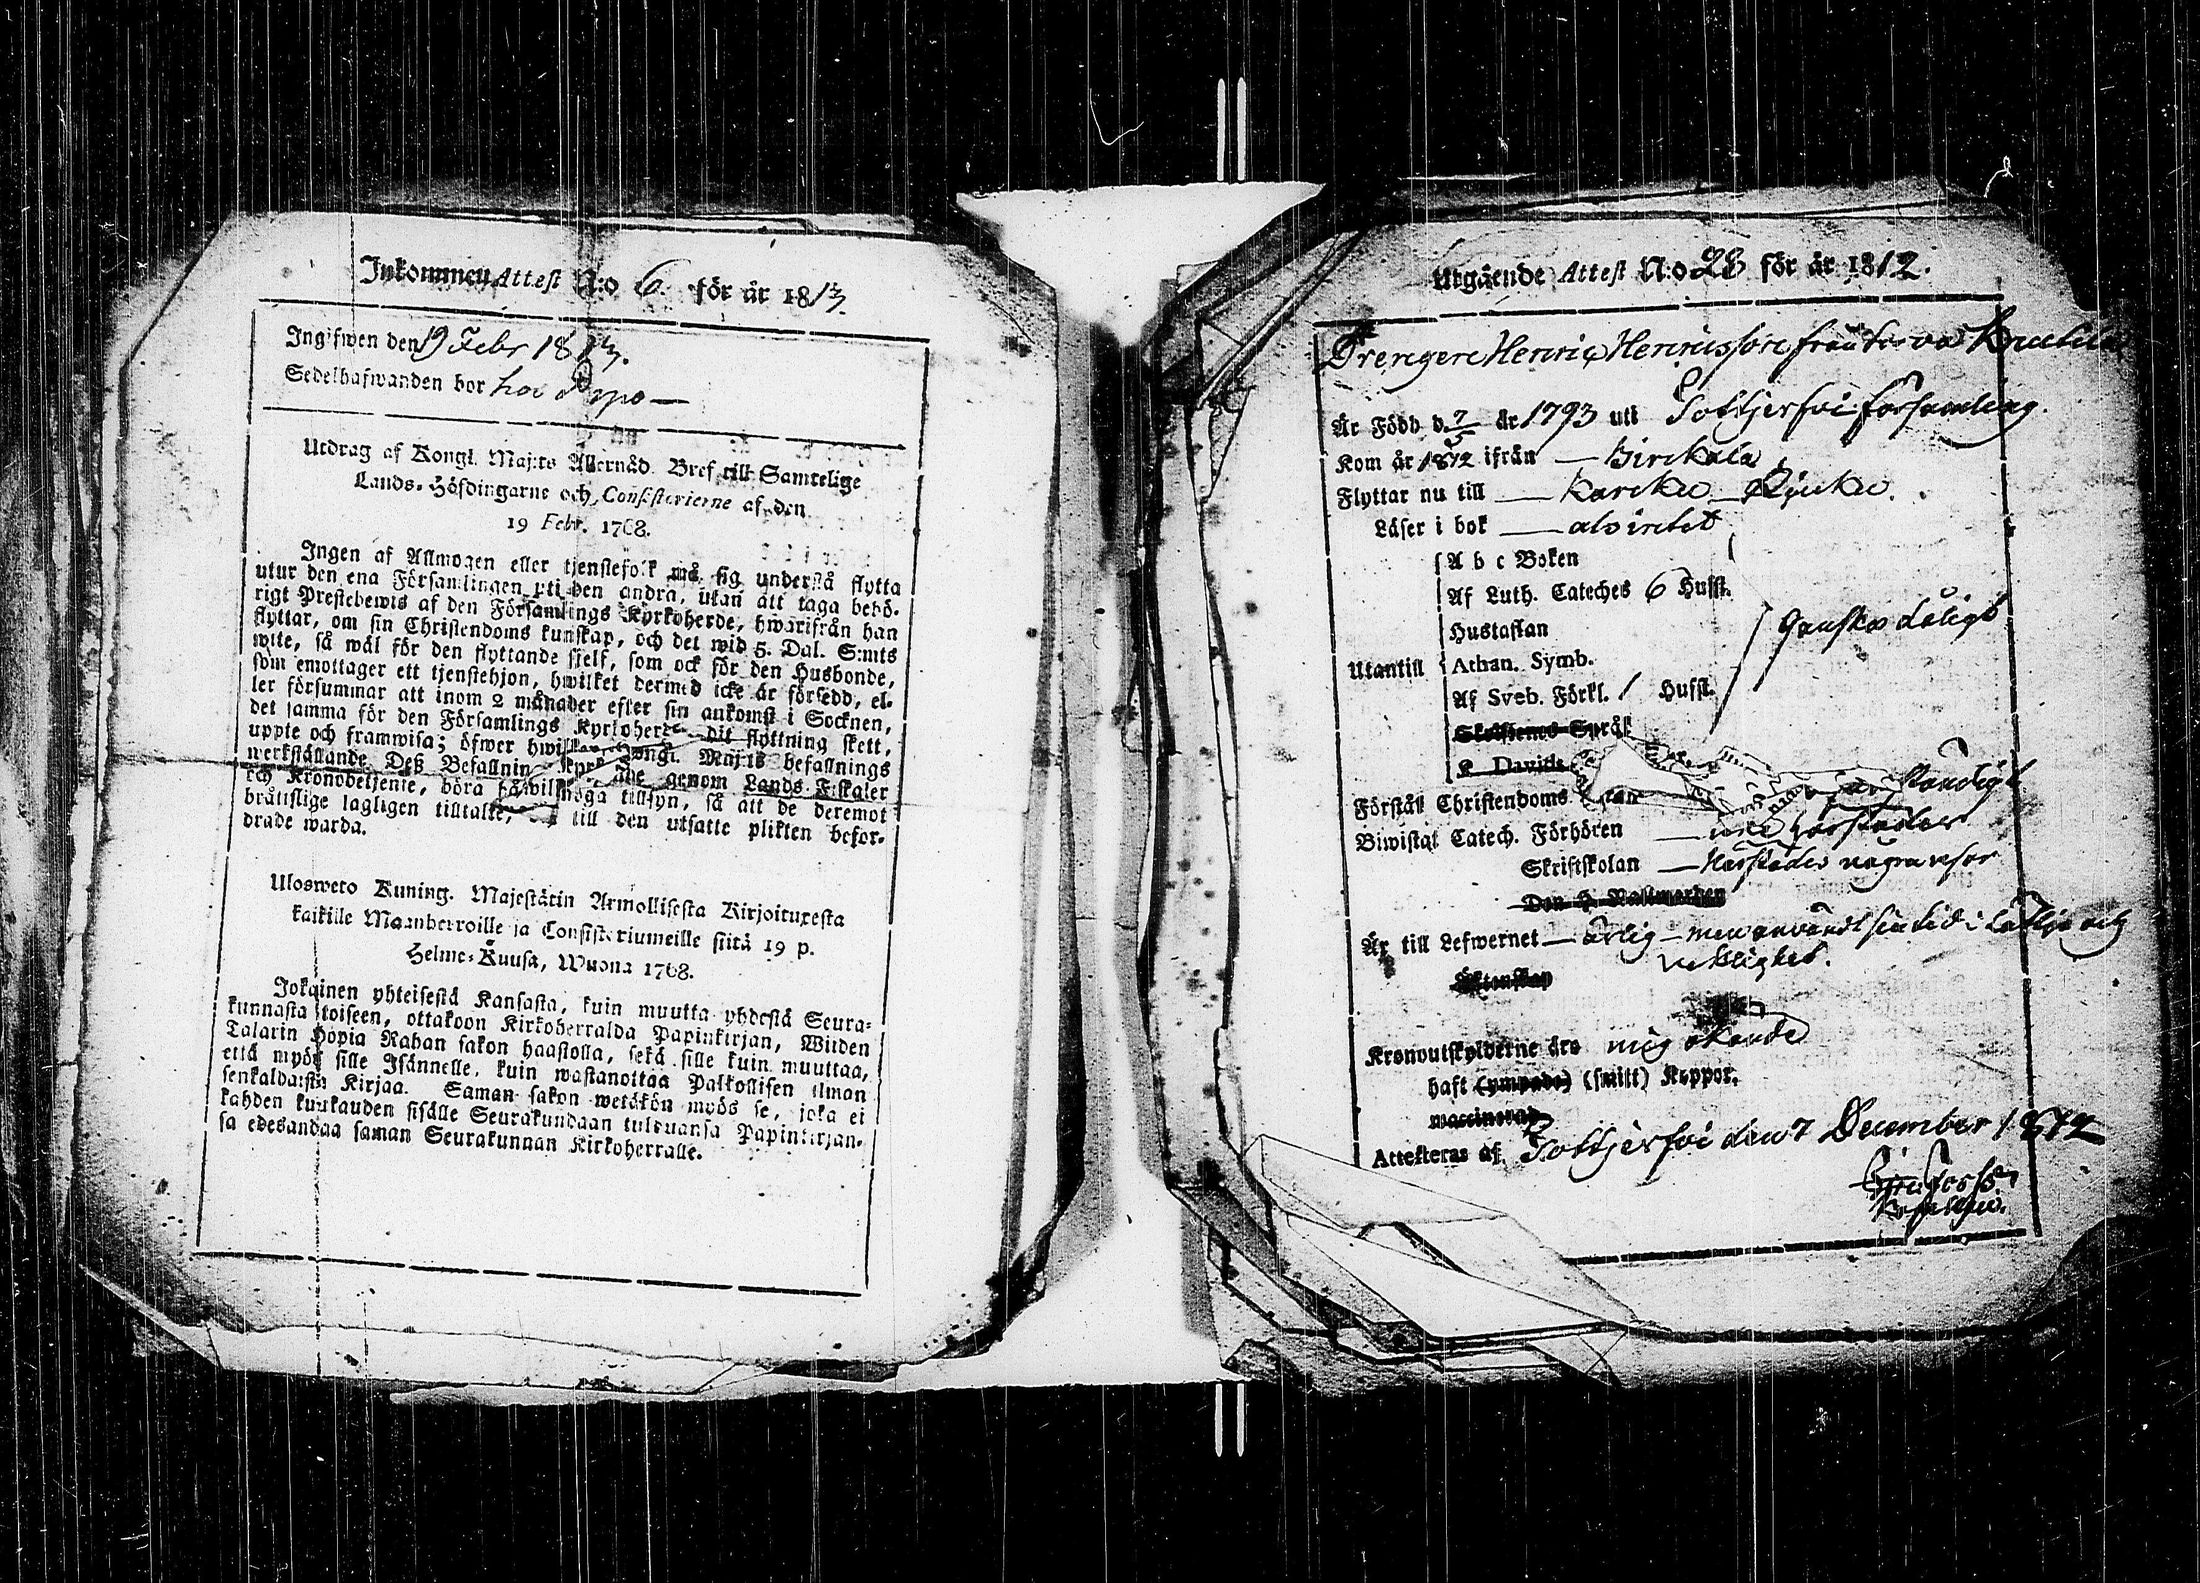 Inkommen Attest N:o 6. för år 1813.
Ingifwen den 19 Febr 1813.
Sedelhafwanden bor hos
Utdrag af Kongl. Maj:ts Allernåd. Bref till Samtelige
Lands-Höfdingarne och Consistorierne af den
19 Febr. 1768.
Ingen af Allmogen eller tjenstefolk må sig understå flytta
utur den ena Församlingen uti den andra, utan att taga behö-
rigt Prestebewis af den Församlings Kyrkoherde, hwarifrån han
flyttar, om sin Christendoms kunskap, och det wid 5. Dal. S:mts
wite, så wäl för den flyttande sjelf, som ock för den Husbonde,
som emottager ett tjenstehjon, hwilket dermed icke är försedd, el-
ler försummar att inom 2 månader efter sin ankomst i Socknen,
det samma för den Församlings Kyrkoherde dit flyttning skett,
uppte och framwisa; öfwer hwilket Kongl. Maj:ts befallnings
werkställande Deß Befallning genom Lands-Fiskaler
och Kronobetjente, böra hafwa noga tillsyn, så att de deremot
bråttslige lagligen tilltalte, och till den utsatte plikten befor-
drade warda.
Ulosweto Kuning. Majestätin Armollisesta Kirjoituxesta
kaikille Maanherroille ja Consistoriumeille siitä 19 p.
Helme-Kuusa, Wuona 1768.
Jokainen yhteisestä Kansasta, kuin muutta yhdestä Seura-
kunnasta toiseen, ottakoon Kirkoherralda Papinkirjan, Wiiden
Talarin Hopia Rahan sakon haastolla, sekä sille kuin muuttaa,
että myös sille Isännelle, kuin wastanottaa Palkollisen ilman
senkaldaista Kirjaa. Saman sakon wetäkön myös se, joka ei
kahden kuukauden sisälle Seurakundaan tultuansa Papinkirjan-
sa edesandaa saman Seurakunnan Kirkoherralle.
Utgående Attest N:o 28 för år 1812.
Drengen Henric Henricsson från
Är Född d. 7/5 år 1793 uti Sottjerfwi församling.
Kom år 1812 ifrån — Birckala
Flyttar nu till — Karcku
Läser i bok —
A b c Boken
Af Luth. Cateches 6 Hufst.
Hustaflan
Utantill Athan. Symb. Ganska dåligt
Af Sveb. Förkl. / Hufst.
Språk
Davids
Förstår Christendoms
Biwistat Catech. Förhören —
Skriftskolan — några resor
Är till Lefwernet — ärlig — men använt sin tid i och
Äktenskap
Kronoutskylderne äro mig okände
haft (ympade) (smitt) Koppor.
vaccinerad
Attesteras af Sottjerfwi den 7 December 1812